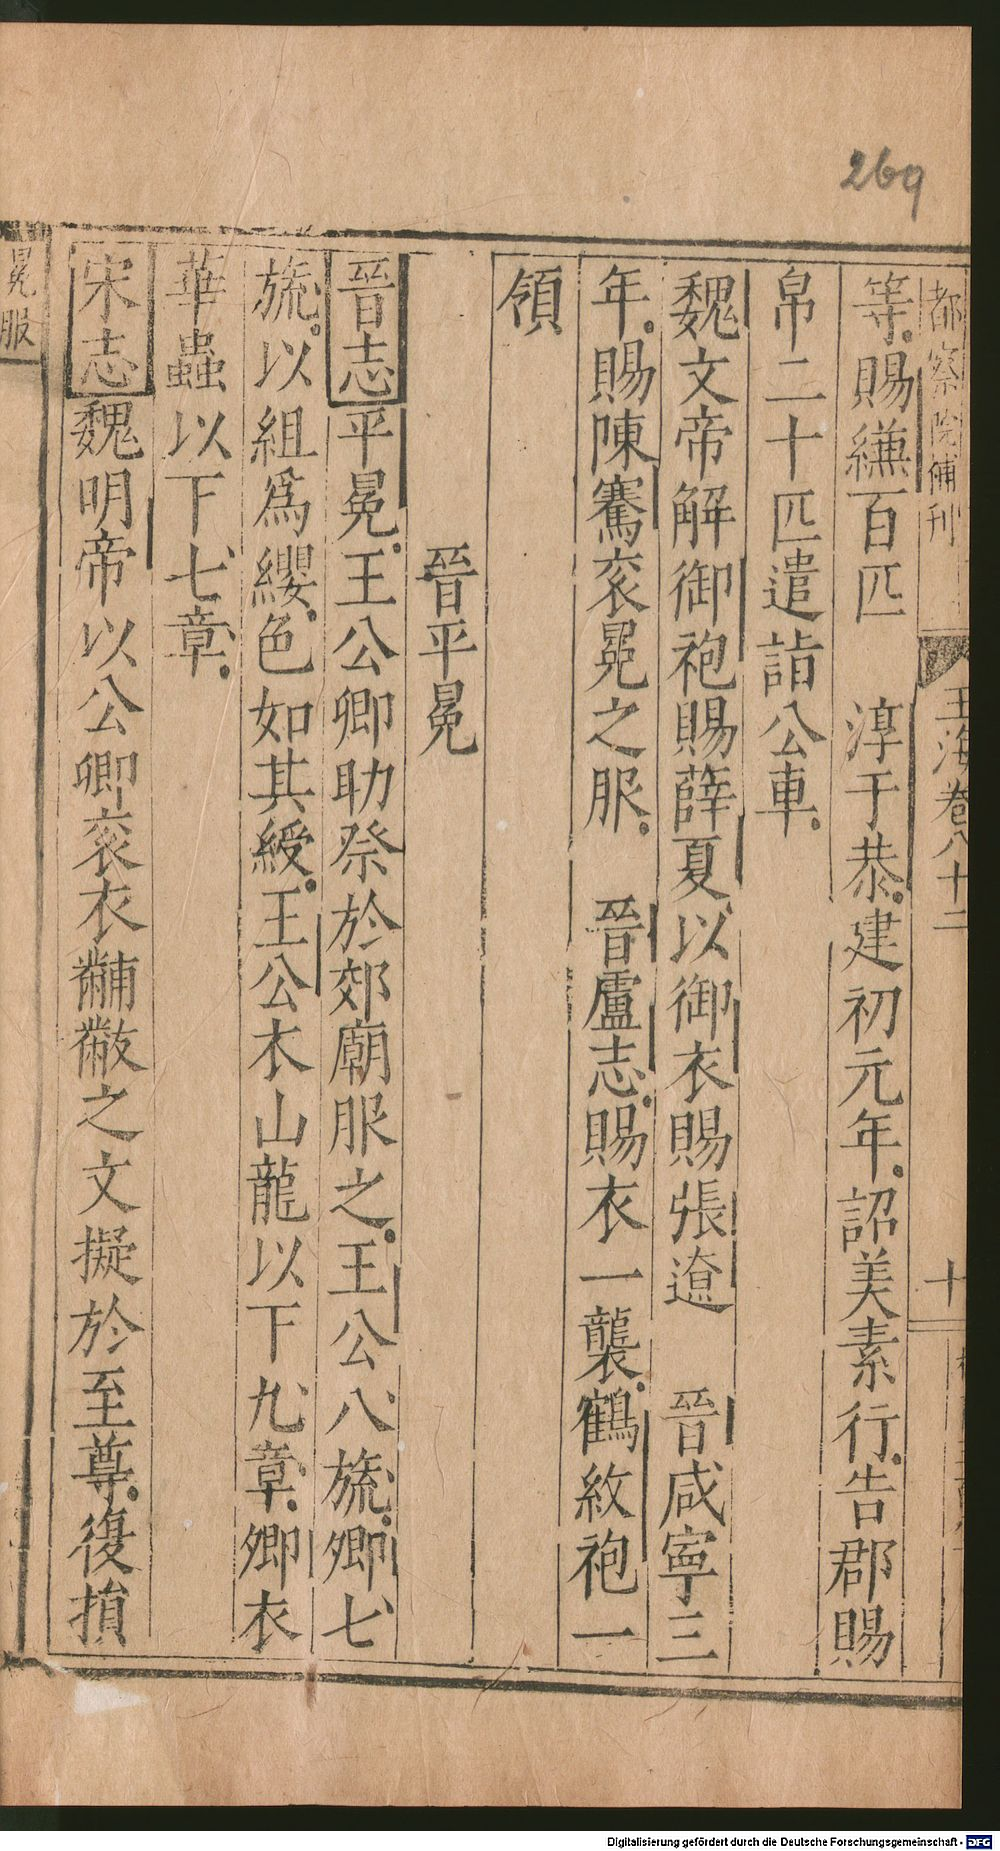 269
都察院補刊
玉海卷八十二
十
等賜縑百匹　淳于恭建初元年詔美素行告郡賜
帛二十匹遣詣公車
魏文帝解御袍賜薛夏以御衣賜張遼　晉咸寧三
年賜陳騫衮冕之服　晉盧志賜衣一襲鶴紋袍一
領
晉平冕
晉志平冕王公卿助祭於郊廟服之王公八旒卿七
旒以組爲纓色如其綬王公衣山龍以下九章卿衣
華蟲以下七章
宋志魏明帝以公卿衮衣黼黻之文擬於至尊復損
冕服
Digitalisierung gefördert durch die Deutsche Forschungsgemeinschaft - DFG